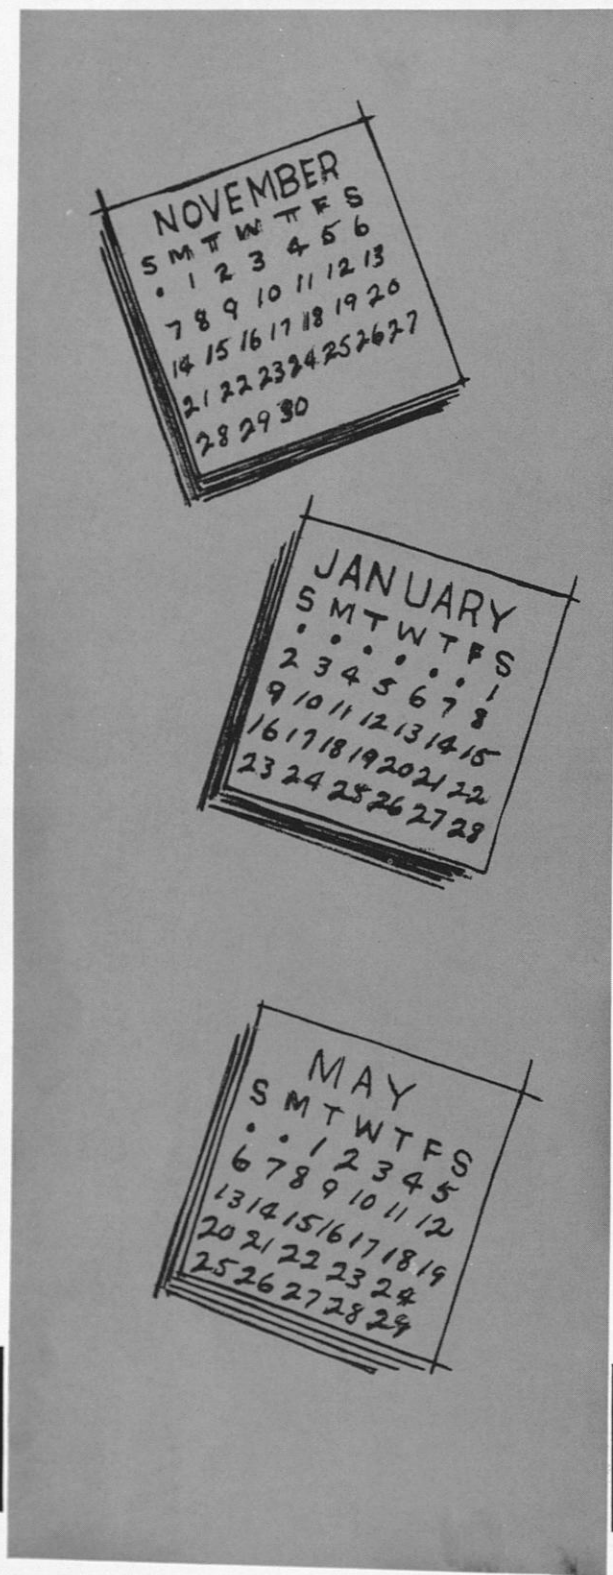 NOVEMBER
S M T W T F S
• 1 2 3 4 5 6
7 8 9 10 11 12 13
14 15 16 17 18 19 20
21 22 23 24 25 26 27
28 29 30
JANUARY
S M T W T F S
• • • • • • 1
2 3 4 5 6 7 8
9 10 11 12 13 14 15
16 17 18 19 20 21 22
23 24 25 26 27 28
MAY
S M T W T F S
• • 1 2 3 4 5
6 7 8 9 10 11 12
13 14 15 16 17 18 19
20 21 22 23 24
25 26 27 28 29